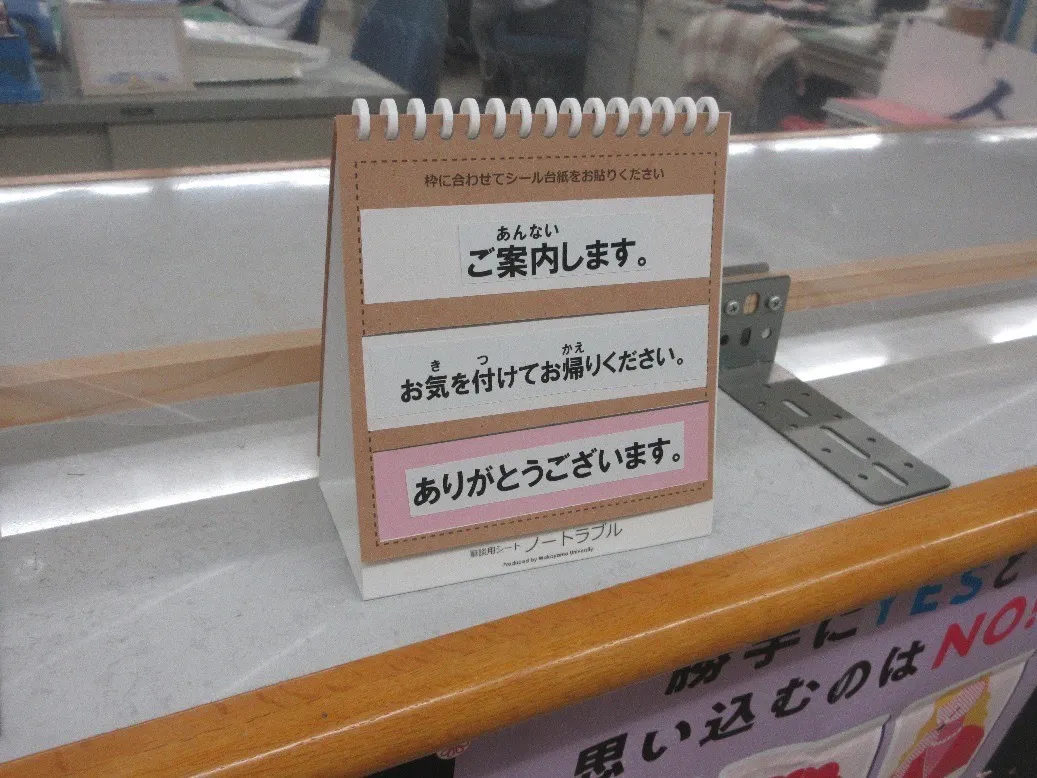 枠に合わせてシール台紙をお貼りください
あんない
ご案内します。
き つ かえ
お気を付けてお帰りください。
ありがとうございます。
筆談用シート ノートラブル
Produced by Wakayama University
勝手にYESと
思い込むのはNO!